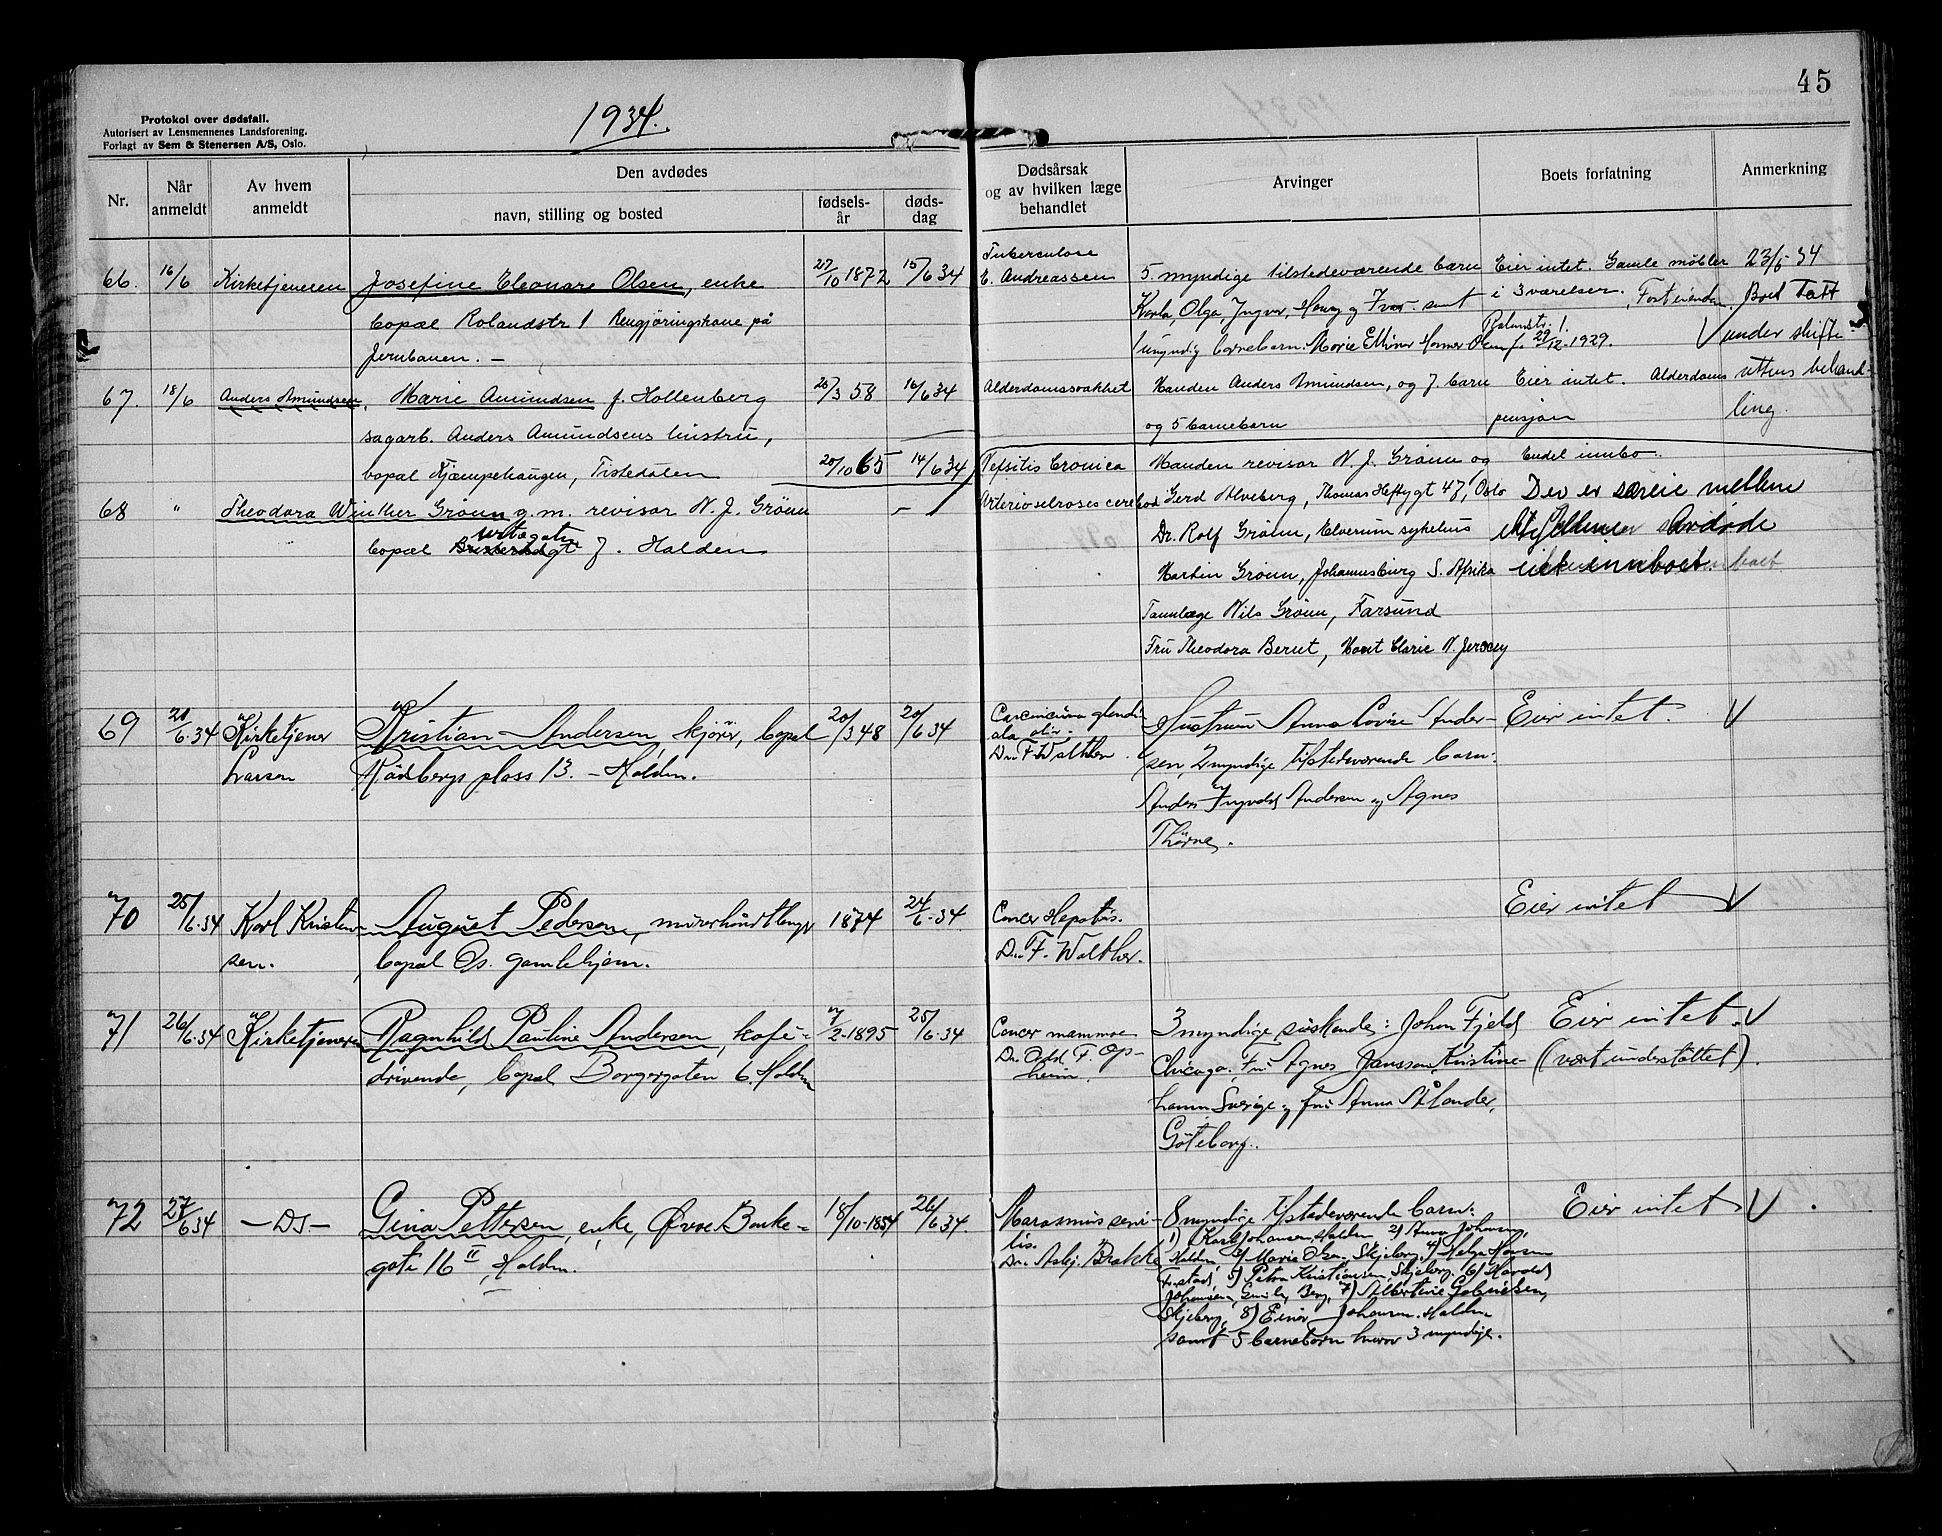 45
Protokol over dødsfall.
Autorisert av Lensmennenes Landsforening.
Forlagt av Sem & Stenersen A/S, Oslo.
1934.
Nr.
Når anmeldt
Av hvem anmeldt
Den avdødes
navn, stilling og bosted
fødsels-år
døds-dag
Dødsårsak og av hvilken læge behandlet
Arvinger
Boets forfatning
Anmerkning
66. 16/6 Kirketjeneren Josefine Eleonore Olsen, enke 27/10 1872 15/6 34
bopæl Rolandstr 1 Rengjøringskone på
Jernbanen. —
Tuberculose
E. Andreassen
5 myndige tilstedeværende barn
Karla, Olga, Ingvar, Henry og Ivar samt
1 umyndig barnebarn Marie f. 29/12-1929.
Eier intet. Gamle møbler
i 3 værelser.
Rolandstr. 1.
23/6 34
Boet tatt
under skifte-
rettens behand-
ling.
67. 18/6 Anders Amundsen, Marie Amundsen f. Hollenberg 25/3 58 16/6 34
sagarb. Anders Amundsens hustru,
bopæl Kjæmpehaugen, Tistedalen
Alderdomssvakhet
Manden Anders Amundsen, og 7 barn
og 5 barnebarn
Eier intet. Alderdoms
pensjon
68 " Theodora Winther Grøun g.m. revisor N. J. Grøun 20/10 65 14/6 34
bopæl 7. Halden
Manden revisor N. J. Grøun og
Gerd Alveberg, Thomas Heftygt 47, Oslo
Dr. Rolf Grøun, Elverum sykehus
Martin Grøun, Johannesburg S. Afrika
Tannlæge Nils Grøun, Farsund
Fru Theodora Berut, Mont Clarie N. Jersey
Endel innbo.
Der er særeie mellem
69 21/6.34 Kirketjener Kristian Andersen, kjører, bopæl 20/3 48 20/6 34
Larsen Rødsbergs plass 13. – Halden.
Dr. F. Walther
Hustruen Anna Lovise Ander-
sen, 2 myndige tilstedeværende barn:
Anders Ingvald Andersen og Agnes
Thörne.
Eier intet. V
70 25/6.34 Karl Kristen- August Pedersen, murerhåndtlanger 1874 24/6.34.
sen. bopæl Os gamlehjem.
Cancer Hepatis.
Dr. F. Walther.
Eier intet V
71 26/6.34 Kirketjeneren Ragnhild Pauline Andersen, kafé- 7/2-1895 25/6.34
drivende, bopæl Borgergaten 6. Halden
Cancer mammae
Dr. Odd F. Op-
heim.
3 myndige søskende: Johan Fjeld
Chicago. Fru Agnes Jansson, Kristine-
hamn, Sverige og fru Anna Ålander,
Göteborg.
Eier intet. V
(vært understøttet).
72 27/6 34 — Ds — Gina Pettersen, enke, Øvre Banke- 18/10-1854 26/6 34.
gate 16 II, Halden.
Marasmus seni-
lis.
Dr. Asbj. Brække
8 myndige tilstedeværende barn:
1) Karl Johansen, Halden 2) Anna Johansen,
Halden 3) Marie Olsen, Skjeberg, 4) Helga Hansen
Fr.stad, 5) Petra Kristiansen, Skjeberg, 6) Harald
Johansen, Berg, 7) Albertine Gabrielsen,
Skjeberg, 8) Einar Johansen, Halden
samt 5 barnebarn hvorav 3 myndige.
Eier intet V